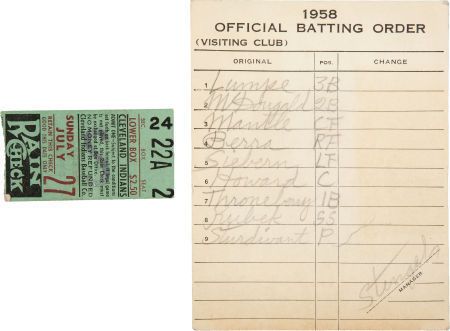 SEC. BOX SEAT
24 22A 2
LOWER BOX $2.50
CLEVELAND INDIANS
NO MONEY REFUNDED
Cleveland Indians Baseball Co.
RETAIN THIS CHECK
SUNDAY
JULY
27
RAIN
CHECK
1958
OFFICIAL BATTING ORDER
(VISITING CLUB)
ORIGINAL POS. CHANGE
1 Lumpe 3B
2 McDougald 2B
3 Mantle CF
4 Berra RF
5 Siebern LF
6 Howard C
7 Throneberry 1B
8 Kubek SS
9 Sturdivant P
Stengel
MANAGER